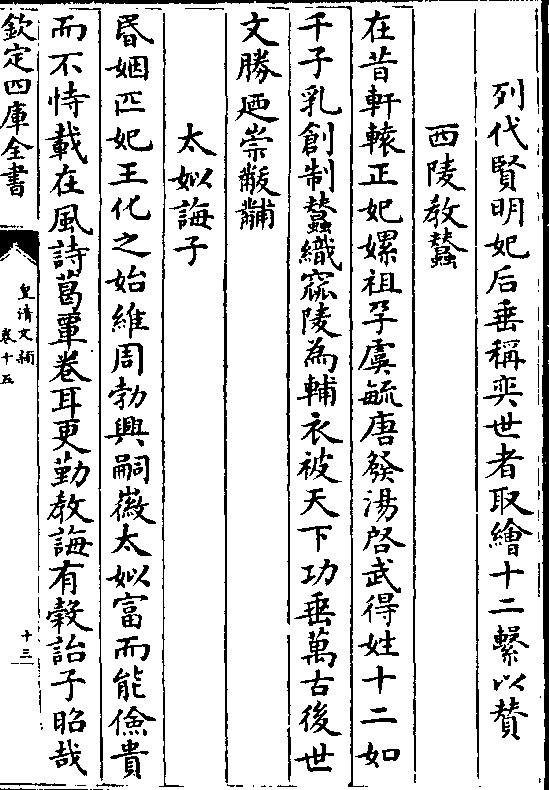 列代賢明妃后垂稱奕世者取繪十二繫以賛
西陵教蠶
在昔軒轅正妃嫘祖孕虞毓唐發湯啓武得姓十二如
千子乳創制蠶織窳陵為輔衣被天下功垂萬古後世
文勝廼崇黻黼
太姒誨子
昏姻匹妃王化之始維周勃興嗣徽太姒富而能儉貴
而不恃載在風詩葛覃卷耳更勤教誨有穀詒子昭哉
欽定四庫全書
皇清文穎
卷十五
十三